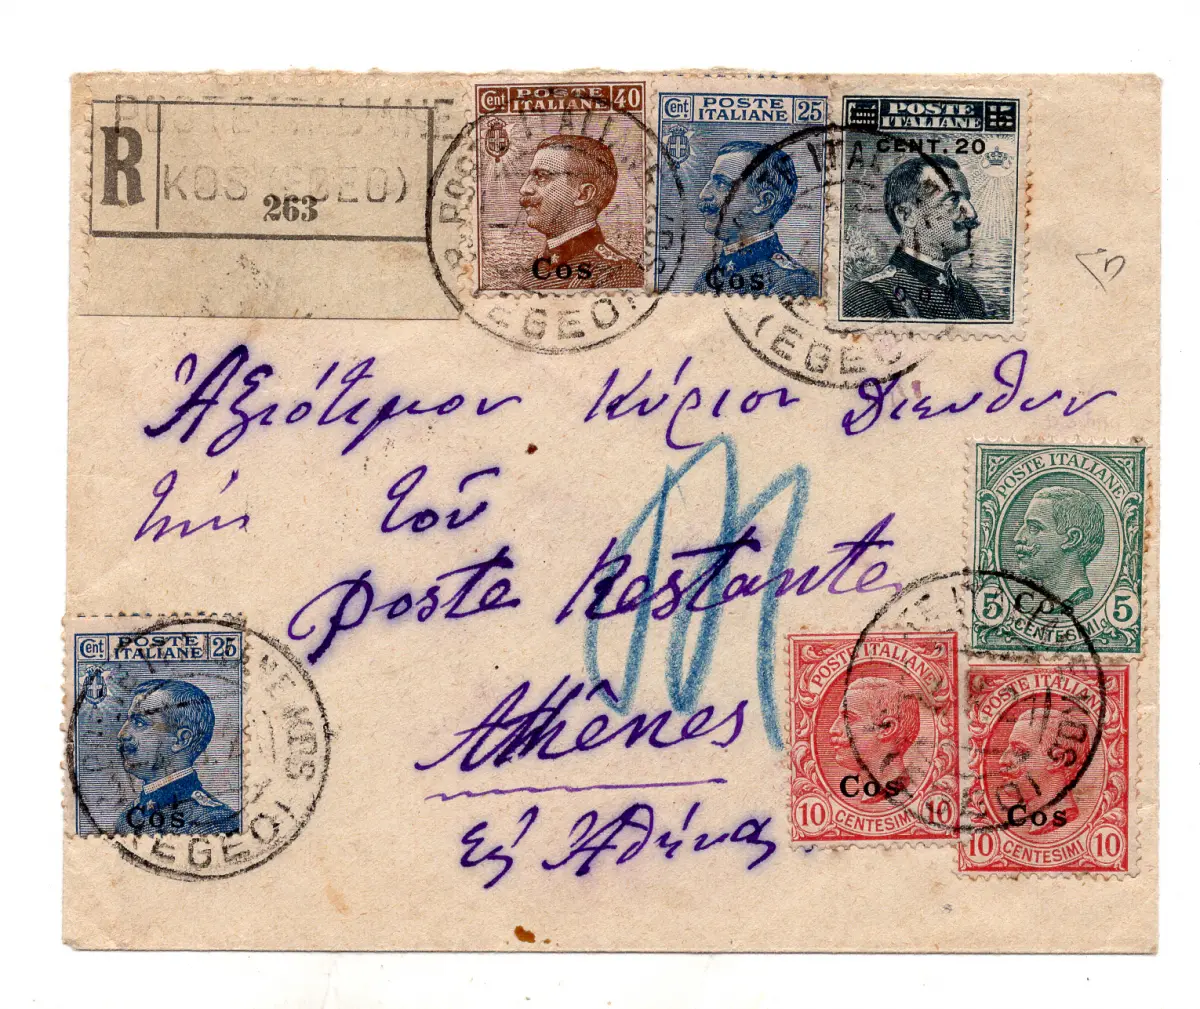 POSTE ITALIANE
R KOS (EGEO)
263
Cent. POSTE ITALIANE 40
Cos
Cent. POSTE ITALIANE 25
Cos
POSTE ITALIANE 15
CENT. 20
Cos
(EGEO)
(EGEO)
Ἀξιότιμον Κύριον Διευθυν
τὴν τοῦ
Poste Restante
Athênes
Εἰς Ἀθήνας
POSTE ITALIANE
5 Cos 5
CENTESIMI
Cent. POSTE ITALIANE 25
Cos
KOS
(EGEO)
POSTE ITALIANE
Cos
10 CENTESIMI 10
POSTE ITALIANE
Cos
10 CENTESIMI 10
KOS